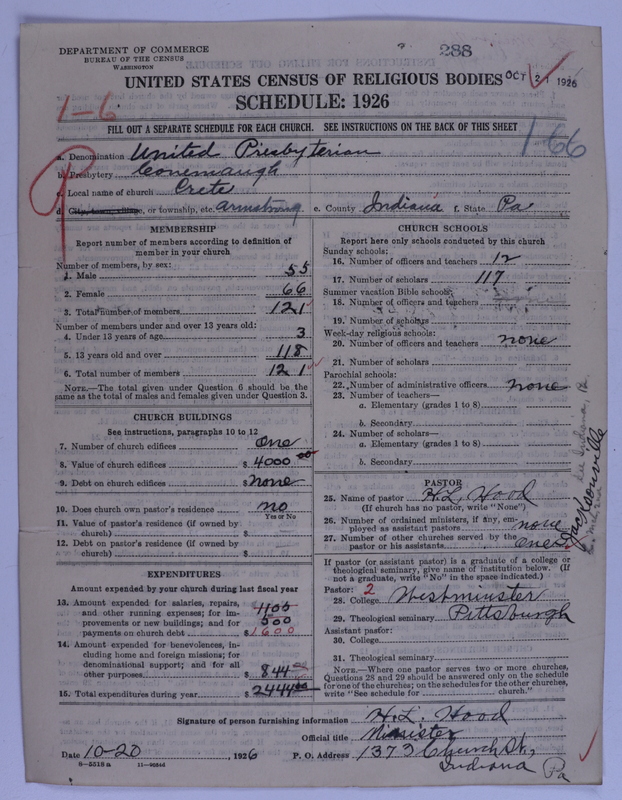 288
DEPARTMENT OF COMMERCE
BUREAU OF THE CENSUS
WASHINGTON
UNITED STATES CENSUS OF RELIGIOUS BODIES OCT 21 1926
SCHEDULE: 1926
1-6
FILL OUT A SEPARATE SCHEDULE FOR EACH CHURCH. SEE INSTRUCTIONS ON THE BACK OF THIS SHEET
1-66
a. Denomination United Presbyterian
b. Presbytery Conemaugh
c. Local name of church Crete
d. City, town, village, or township, etc. Armstrong e. County Indiana f. State Pa
MEMBERSHIP
Report number of members according to definition of
member in your church
Number of members, by sex:
1. Male 55
2. Female 66
3. Total number of members 121
Number of members under and over 13 years old:
4. Under 13 years of age 3
5. 13 years old and over 118
6. Total number of members 121
NOTE.—The total given under Question 6 should be the
same as the total of males and females given under Question 3.
CHURCH BUILDINGS
See instructions, paragraphs 10 to 12
7. Number of church edifices One
8. Value of church edifices $ 4000 00
9. Debt on church edifices $ none
10. Does church own pastor's residence? no
Yes or No
11. Value of pastor's residence (if owned by
church) $
12. Debt on pastor's residence (if owned by
church) $
EXPENDITURES
Amount expended by your church during last fiscal year
13. Amount expended for salaries, repairs,
and other running expenses; for im- 1100
provements or new buildings; and for 500
payments on church debt $ 1600
14. Amount expended for benevolences, in-
cluding home and foreign missions; for
denominational support; and for all
other purposes $ 844
15. Total expenditures during year $ 2444 00
CHURCH SCHOOLS
Report here only schools conducted by this church
Sunday schools:
16. Number of officers and teachers 12
17. Number of scholars 117
Summer vacation Bible schools:
18. Number of officers and teachers
19. Number of scholars
Week-day religious schools:
20. Number of officers and teachers none
21. Number of scholars
Parochial schools:
22. Number of administrative officers none
23. Number of teachers—
a. Elementary (grades 1 to 8)
b. Secondary
24. Number of scholars—
a. Elementary (grades 1 to 8)
b. Secondary
PASTOR
25. Name of pastor H. L. Hood
(If church has no pastor, write "None")
26. Number of ordained ministers, if any, em-
ployed as assistant pastors none
27. Number of other churches served by the
pastor or his assistants One
Jacksonville
See Indiana, Pa.
If pastor (or assistant pastor) is a graduate of a college or
theological seminary, give name of institution below. (If
not a graduate, write "No" in the space indicated.)
Pastor: 2
28. College Westminster
29. Theological seminary Pittsburgh
Assistant pastor:
30. College
31. Theological seminary
NOTE.—Where one pastor serves two or more churches,
Questions 28 and 29 should be answered only on the schedule
for one of the churches; on the schedules for the other churches,
write "See schedule for church."
Signature of person furnishing information H. L. Hood
Official title Minister
Date 10-20, 1926 P. O. Address 1373 Church St.,
Indiana Pa
8—5518 a